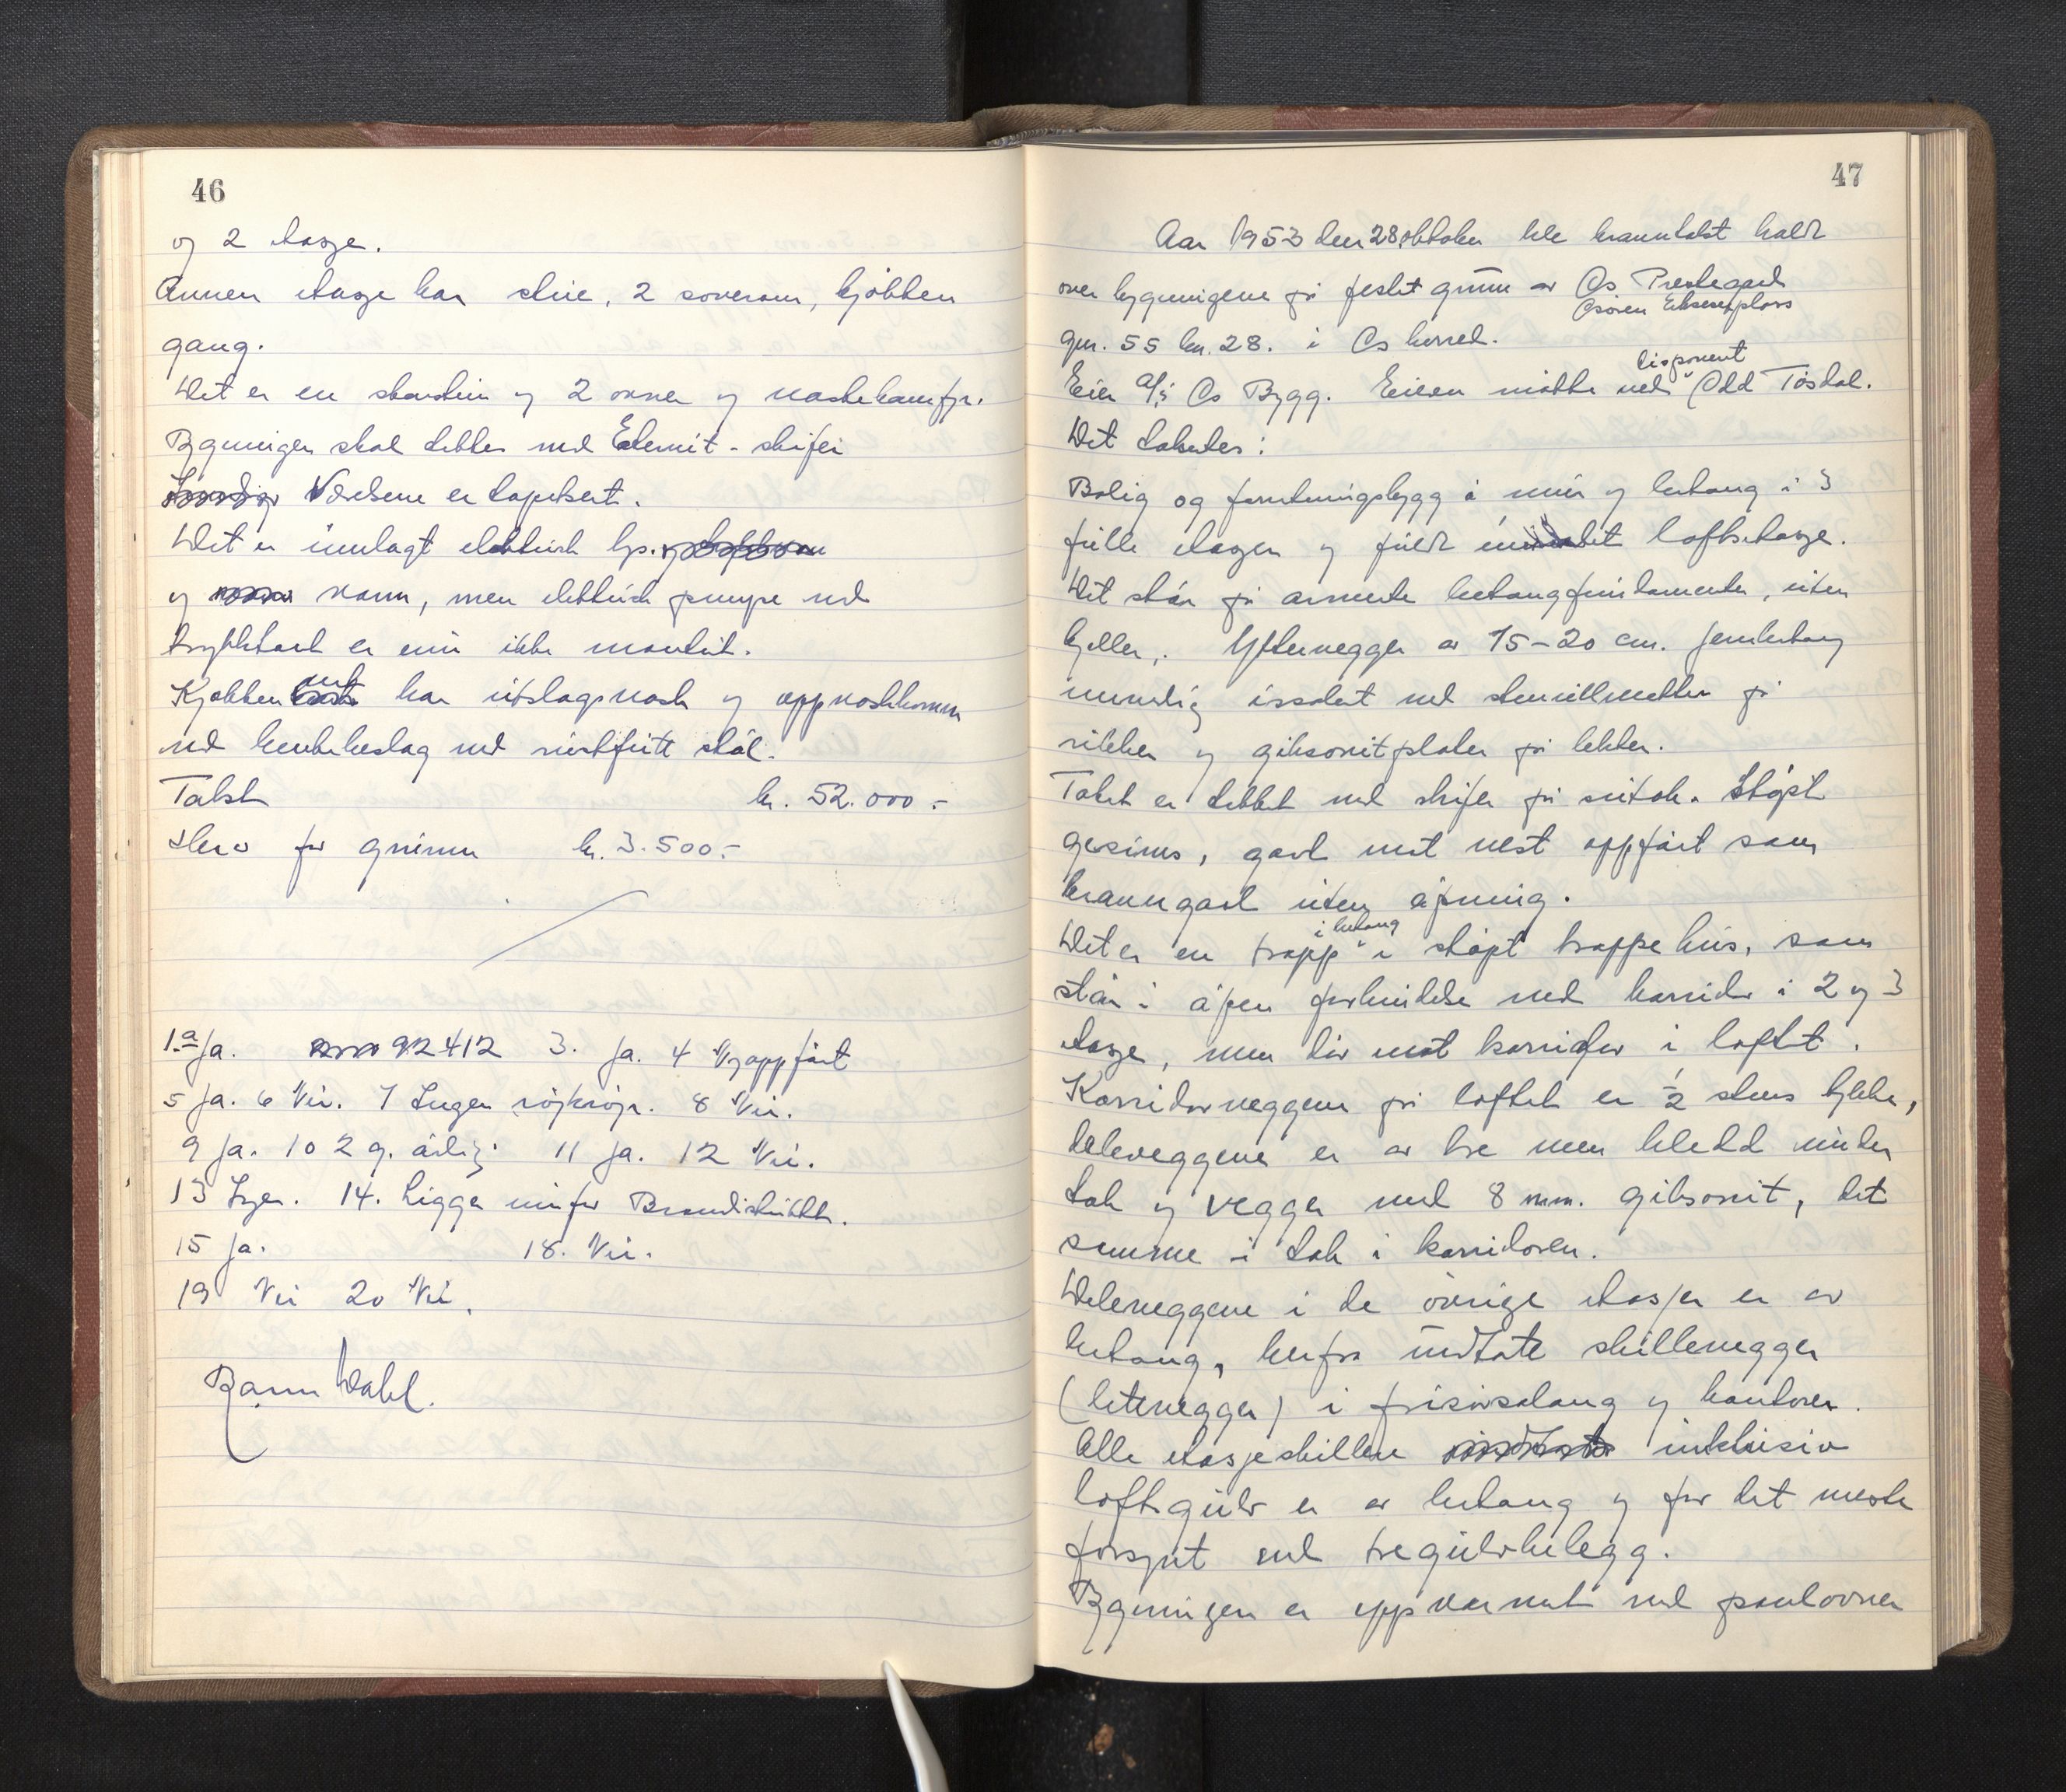 46
og 2 etasje.
Annen etasje har stue, 2 soverom, kjøkken
gang.
Det er en skorstein og 2 ovner og vaskekomfyr.
Bygningen skal dekkes med Eternit-skifer
Værelsene er tapetsert.
Det er innlagt elektrisk lys
og vann, men elektrisk pumpe med
trykktank er ennu ikke montert.
Kjøkkenet har utslagsvask og oppvaskkomm
med benkebeslag med rustfritt stål.
Takst kr. 52.000.-
Herav for grunn kr. 3.500.-
1.a Ja. 92412 3. Ja. 4 Nyoppført
5 Ja. 6 Nei. 7 Ingen røykrør. 8 Nei.
9 Ja. 10 2 g. årlig. 11 Ja. 12 Nei.
13 Ingen. 14. Ligger utenfor Branndistrikt.
15 Ja. 18. Nei.
19 Nei 20 Nei.
Dahl.
47
Aar 1953 den 28 oktober ble branntakst holdt
over bygningene på festet grunn av Os Prestegard
Osøren Ekserserplass
gnr. 55 bnr. 28. i Os herred.
disponent
Eier A/S Os Bygg. Eieren møtte ved Odd Tøsdal.
Det takseres:
Bolig og forretningsbygg i mur og betong i 3
fulle etasjer og fullt innredet loftsetasje.
Det står på armerte betongfundamenter, uten
kjeller. Yttervegger av 15-20 cm. jernbetong
innvendig isolert med stenullmatter på
rekker og gibsonitplater på lekter.
Taket er tekket med skifer på sutak. Støpt
gesims, gavl mot vest oppført som
branngavl uten åpning.
i betong
Det er en trapp i støpt trappehus, som
står i åpen forbindelse med korridor i 2 og 3
etasje, men dør mot korridor i loftet.
Korridorveggene på loftet er ½ stens tykke,
deleveggene er av tre men kledd under
tak og vegger med 8 mm. gibsonit, det
samme i tak i korridoren.
Deleveggene i de øvrige etasjer er av
betong, herfra undtatt skillevegger
(lettvegger) i frisørsalong og kontorer.
Alle etasjeskillere inklusiv
loftsgulv er av betong og for det meste
forsynt med tregulvbelegg.
Bygningen er oppvarmet med panelovner